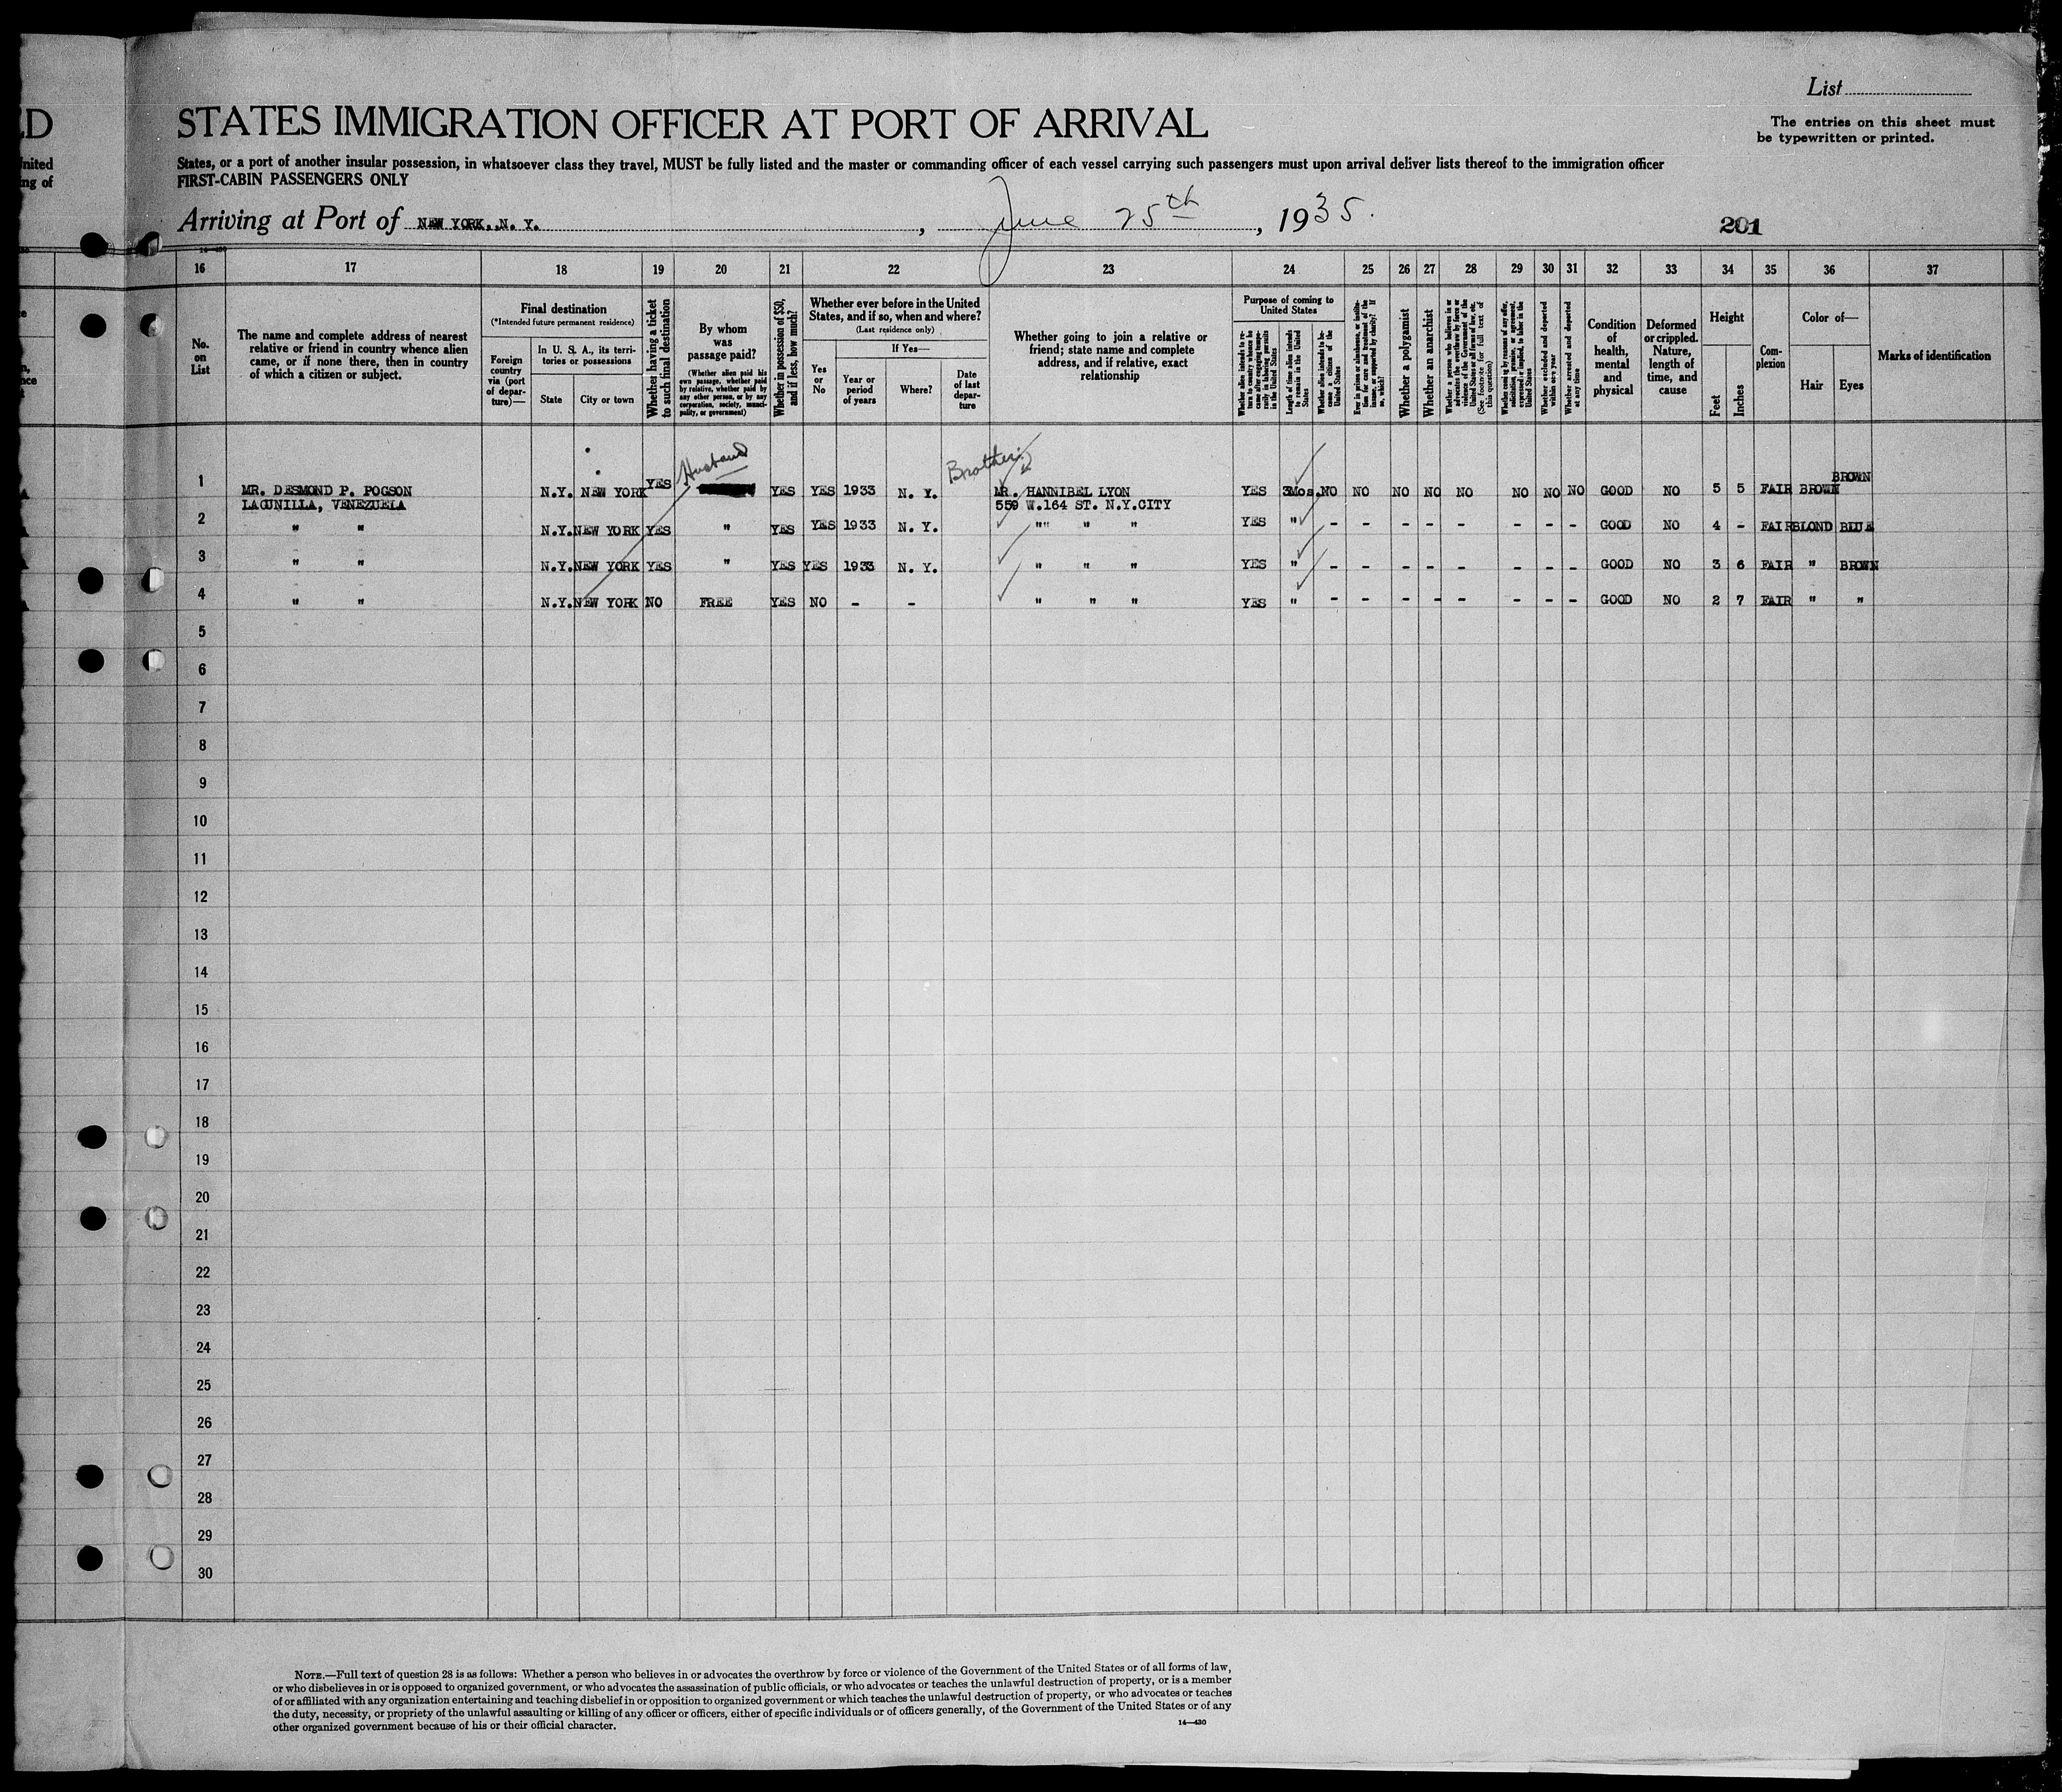 List
ED
STATES IMMIGRATION OFFICER AT PORT OF ARRIVAL
The entries on this sheet must
be typewritten or printed.
States, or a port of another insular possession, in whatsoever class they travel, MUST be fully listed and the master or commanding officer of each vessel carrying such passengers must upon arrival deliver lists thereof to the immigration officer
FIRST-CABIN PASSENGERS ONLY
Arriving at Port of NEW YORK, N. Y. , June 25th , 1935.
201
16 17 18 19 20 21 22 23 24 25 26 27 28 29 30 31 32 33 34 35 36 37
No. on List
The name and complete address of nearest
relative or friend in country whence alien
came, or if none there, then in country
of which a citizen or subject.
Final destination
(*Intended future permanent residence)
Foreign country via (port of departure)—
In U. S. A., its territories or possessions
State
City or town
Whether having a ticket to such final destination
By whom was passage paid?
(Whether alien paid his own passage, whether paid by relative, whether paid by any other person, or by any corporation, society, municipality, or government)
Whether in possession of $50, and if less, how much?
Whether ever before in the United States, and if so, when and where?
(Last residence only)
Yes or No
If Yes—
Year or period of years
Where?
Date of last departure
Whether going to join a relative or
friend; state name and complete
address, and if relative, exact
relationship
Purpose of coming to United States
Whether alien intends to return to country whence he came after engaging temporarily in laboring pursuits in the United States
Length of time alien intends to remain in the United States
Whether alien intends to become a citizen of the United States
Ever in prison or almshouse, or institution for care and treatment of the insane, or supported by charity? If so, which?
Whether a polygamist
Whether an anarchist
Whether a person who believes in or advocates the overthrow by force or violence of the Government of the United States or all forms of law, etc. (See footnote for full text of this question)
Whether coming by reason of any offer, solicitation, promise, or agreement, expressed or implied, to labor in the United States
Whether excluded and deported within one year
Whether arrested and deported at any time
Condition of health, mental and physical
Deformed or crippled. Nature, length of time, and cause
Height
Feet
Inches
Complexion
Color of—
Hair
Eyes
Marks of identification
Husband
Brother:
1 MR. DESMOND P. POGSON N.Y. NEW YORK YES YES YES 1933 N. Y. MR. HANNIBEL LYON YES 3Mos. NO NO NO NO NO NO NO NO GOOD NO 5 5 FAIR BROWN BROWN
LAGUNILLA, VENEZUELA 559 W.164 ST. N.Y.CITY
2 " " N.Y. NEW YORK YES " YES YES 1933 N. Y. "" " " YES " - - - - - - - - GOOD NO 4 - FAIR BLOND BLUE
3 " " N.Y. NEW YORK YES " YES YES 1933 N. Y. " " " YES " - - - - - - - - GOOD NO 3 6 FAIR " BROWN
4 " " N.Y. NEW YORK NO FREE YES NO - - " " " YES " - - - - - - - - GOOD NO 2 7 FAIR " "
5
6
7
8
9
10
11
12
13
14
15
16
17
18
19
20
21
22
23
24
25
26
27
28
29
30
NOTE.—Full text of question 28 is as follows: Whether a person who believes in or advocates the overthrow by force or violence of the Government of the United States or of all forms of law,
or who disbelieves in or is opposed to organized government, or who advocates the assassination of public officials, or who advocates or teaches the unlawful destruction of property, or is a member
of or affiliated with any organization entertaining and teaching disbelief in or opposition to organized government or which teaches the unlawful destruction of property, or who advocates or teaches
the duty, necessity, or propriety of the unlawful assaulting or killing of any officer or officers, either of specific individuals or of officers generally, of the Government of the United States or of any
other organized government because of his or their official character.
14—430